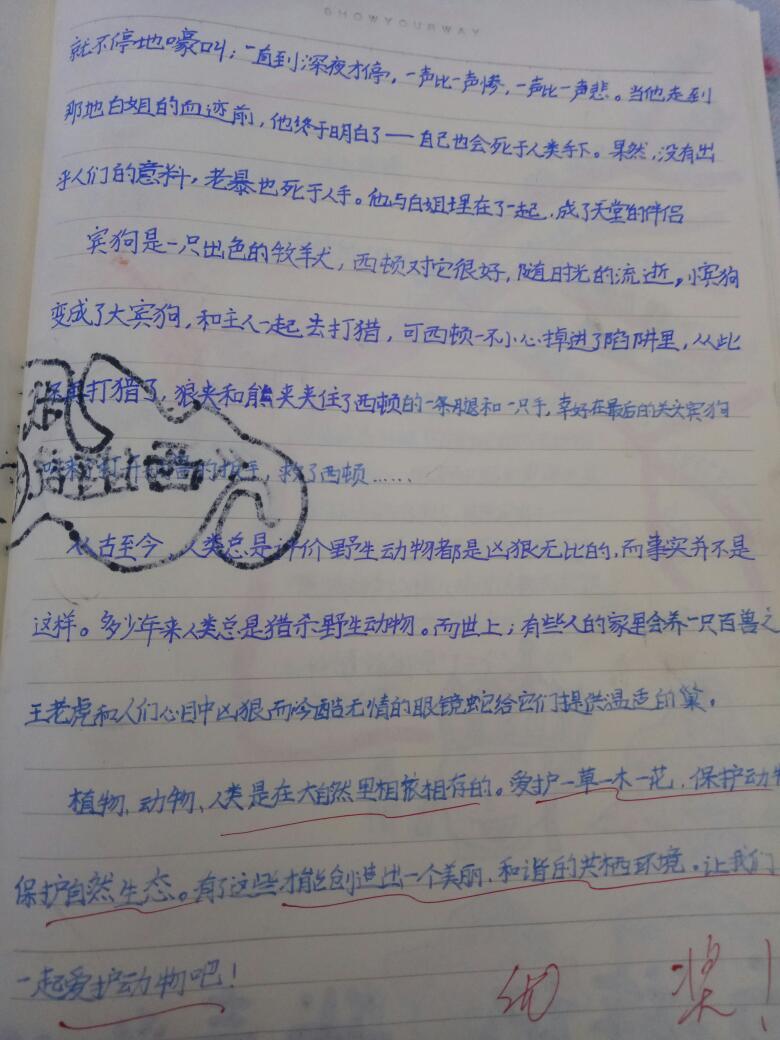 SHOWYOURWAY
就不停地嚎叫；一直到深夜才停，一声比一声惨，一声比一声悲。当他走到
那地白姐的血迹前，他终于明白了——自己也会死于人类手下。果然，没有出
乎人们的意料，老暴也死于人手。他与白姐埋在了一起，成了天堂的伴侣
宾狗是一只出色的牧羊犬，西顿对它很好，随时光的流逝，小宾狗
变成了大宾狗，和主人一起去打猎，可西顿一不小心掉进了陷阱里，从此
打猎了，狼夹和熊夹夹住了西顿的一条腿和一只手，幸好在最后的关头宾狗
打开 的扳手，救了西顿……
从古至今，人类总是评价野生动物都是凶狠无比的，而事实并不是
这样。多少年来人类总是猎杀野生动物。而世上；有些人的家里会养一只百兽之
王老虎和人们心目中凶狠而冷酷无情的眼镜蛇给它们提供温适的巢。
植物、动物、人类是在大自然里相依相存的。爱护一草一木一花，保护动物
保护自然生态。有了这些才能创造出一个美丽、和谐的共栖环境。让我们
一起爱护动物吧！
优 奖！